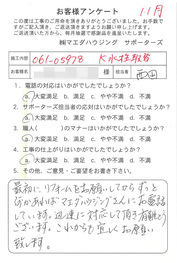 お客様アンケート
11月
この度は工事のご用命を頂きましてありがとうございました。お手数で
すがご記入頂き、ご返送頂きますようお願い申し上げます。
ご返送頂いた方から、毎月抽選で感謝品を進呈致します。
㈱マエダハウジング サポーターズ
工事内容 061-05978 K水栓取替
お名前 様 担当者 西田
1. 電話の対応はいかがでしたでしょうか?
a.大変満足 b.満足 c.やや不満 d.不満
2. サポーターズ担当者の応対はいかがでしたでしょうか?
a.大変満足 b.満足 c.やや不満 d.不満
3. 職人( )のマナーはいかがでしたでしょうか?
a.大変満足 b.満足 c.やや不満 d.不満
4. 工事の仕上がりはいかがでしたでしょうか?
a.大変満足 b.満足 c.やや不満 d.不満
5. その他、ご意見・ご要望などをお書き下さい。
最初にリフォームをお願いしてからずっと
何かあればマエダハウジングさんにお電話
しています。迅速に対応して頂き有難う
ございます。これからも宜しくお願い
致します。